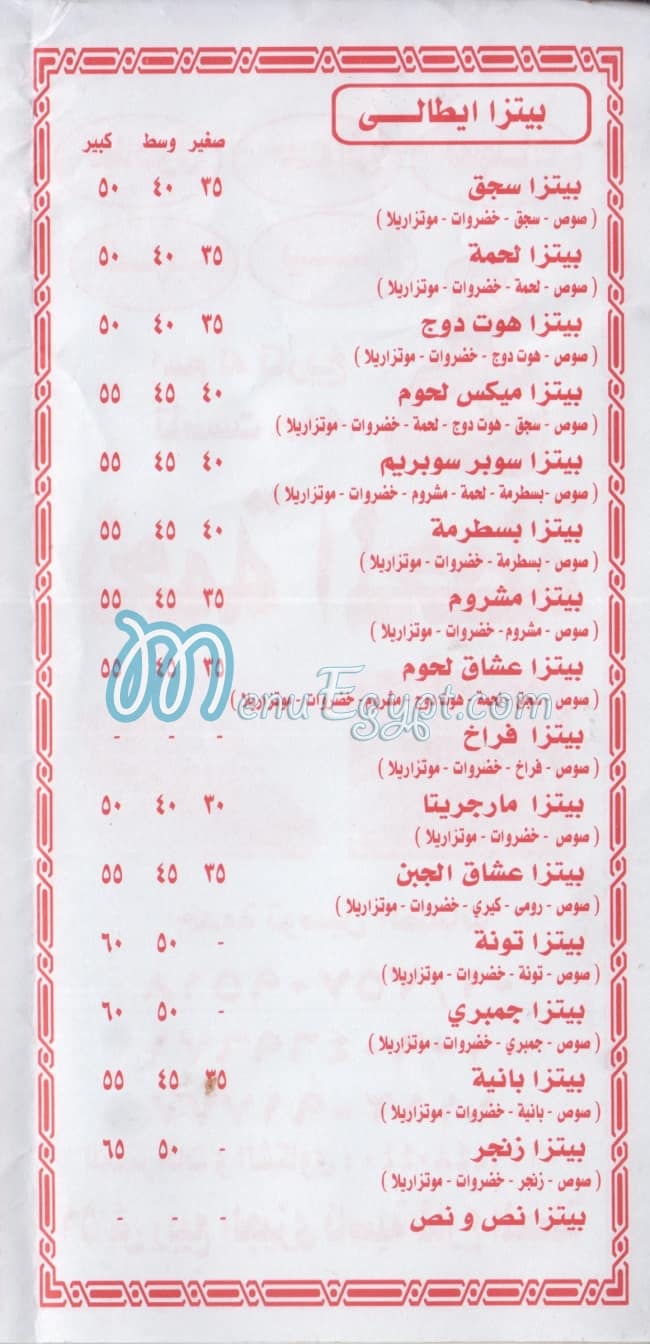 بيتزا ايطالـــى
صغير وسط كبير
بيتزا سجق ٣٥ ٤٠ ٥٠
( صوص - سجق - خضروات - موتزاريلا )
بيتزا لحمة ٣٥ ٤٠ ٥٠
( صوص - لحمة - خضروات - موتزاريلا )
بيتزا هوت دوج ٣٥ ٤٠ ٥٠
( صوص - هوت دوج - خضروات - موتزاريلا )
بيتزا ميكس لحوم ٤٠ ٤٥ ٥٥
( صوص - سجق - هوت دوج - لحمة - خضروات - موتزاريلا )
بيتزا سوبر سوبريم ٤٠ ٤٥ ٥٥
( صوص - بسطرمة - لحمة - مشروم - خضروات - موتزاريلا )
بيتزا بسطرمة ٤٠ ٤٥ ٥٥
( صوص - بسطرمة - خضروات - موتزاريلا )
بيتزا مشروم ٣٥ ٤٥ ٥٥
( صوص - مشروم - خضروات - موتزاريلا )
بيتزا عشاق لحوم ٣٥ ٤٥ ٥٥
( صوص - سجق - لحمة - هوت دوج - مشروم - خضروات - موتزاريلا )
MenuEgypt.com
بيتزا فراخ - - -
( صوص - فراخ - خضروات - موتزاريلا )
بيتزا مارجريتا ٣٠ ٤٠ ٥٠
( صوص - خضروات - موتزاريلا )
بيتزا عشاق الجبن ٣٥ ٤٥ ٥٥
( صوص - رومى - كيري - خضروات - موتزاريلا )
بيتزا تونة - ٥٠ ٦٠
( صوص - تونة - خضروات - موتزاريلا )
بيتزا جمبري - ٥٠ ٦٠
( صوص - جمبري - خضروات - موتزاريلا )
بيتزا بانية ٣٥ ٤٥ ٥٥
( صوص - بانية - خضروات - موتزاريلا )
بيتزا زنجر - ٥٠ ٦٥
( صوص - زنجر - خضروات - موتزاريلا )
بيتزا نص و نص - - -